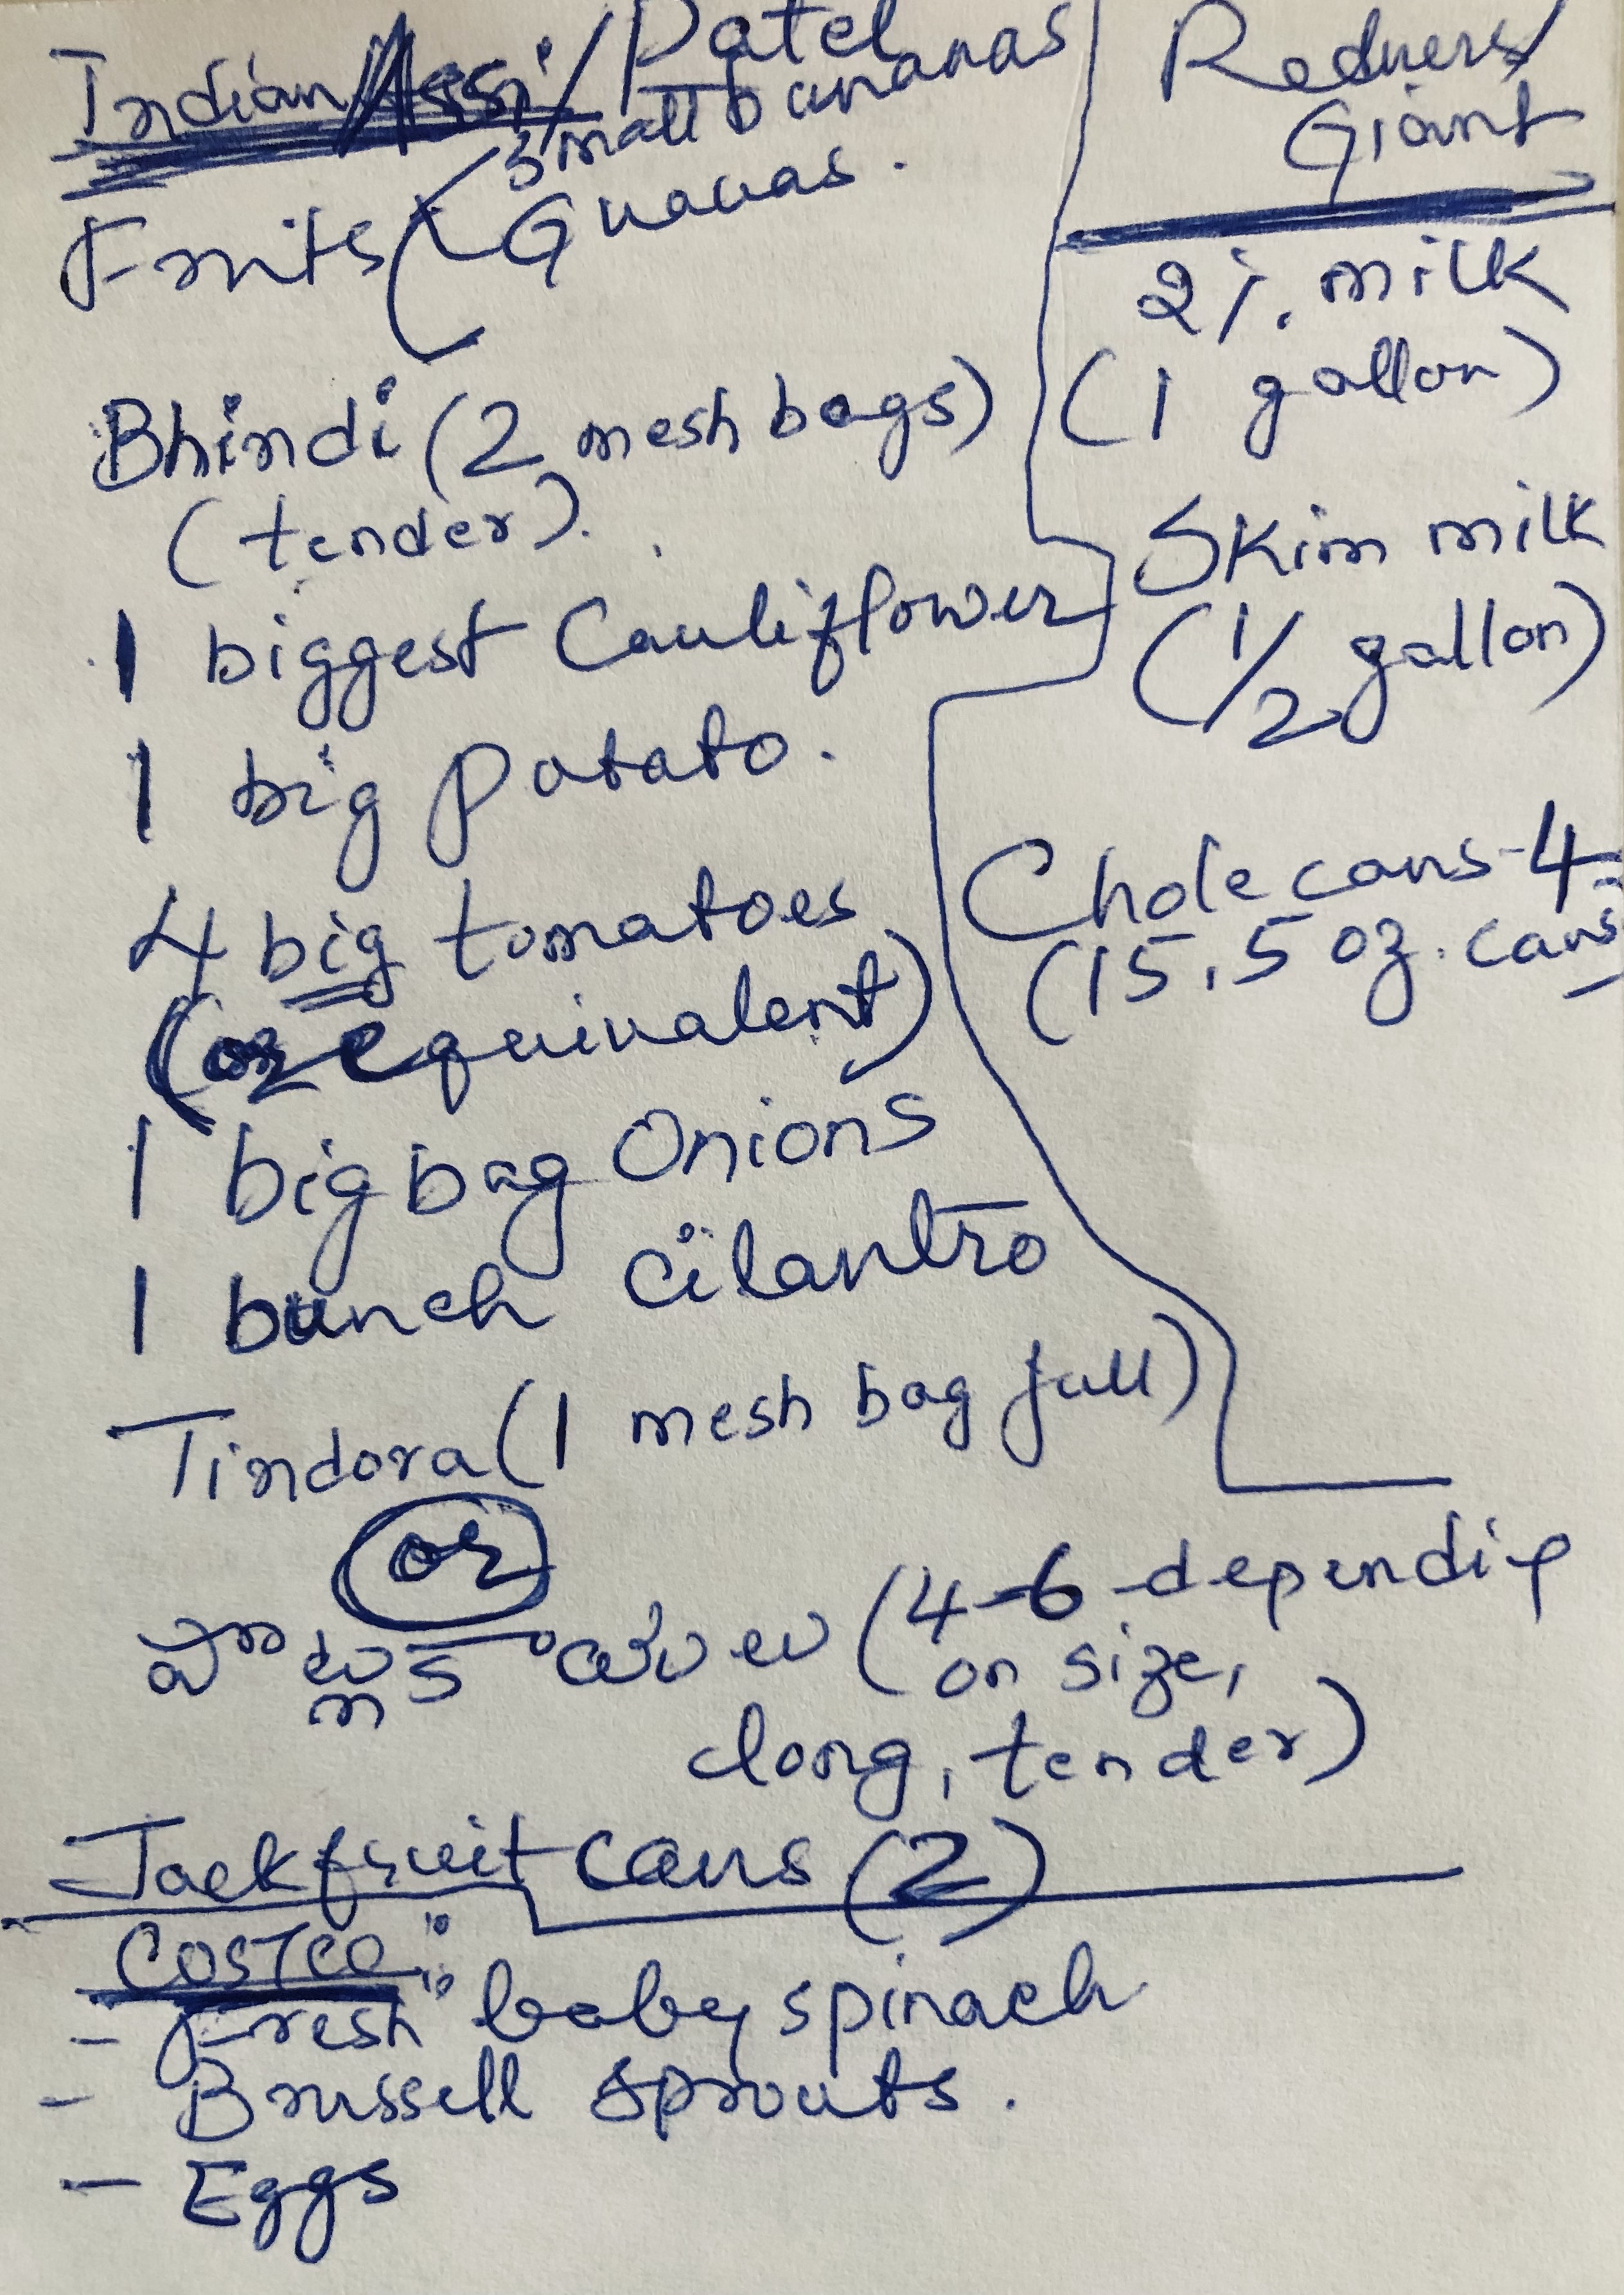 Indian Assi/Patel
Fruits ( small bananas
Guavas.
Bhindi (2 mesh bags)
(tender).
1 biggest Cauliflower
1 big potato.
4 big tomatoes
(or equivalent)
1 big bag Onions
1 bunch cilantro
Tindora (1 mesh bag full)
or
పొట్లకాయలు (4-6 depending
on size,
long, tender)
Jackfruit cans (2)
Redners/
Giant
2% milk
(1 gallon)
Skim milk
(1/2 gallon)
Chole cans-4
(15.5 oz. cans
COSTCO:
- Fresh baby spinach
- Brussell sprouts.
- Eggs